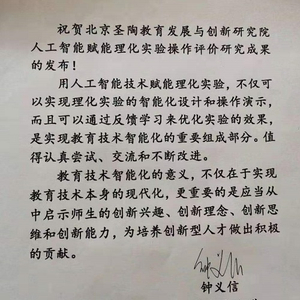 祝贺北京圣陶教育发展与创新研究院
人工智能赋能理化实验操作评价研究成果
的发布！
用人工智能技术赋能理化实验，不仅可
以实现理化实验的智能化设计和操作演示，
而且可以通过反馈学习来优化实验的效果，
是实现教育技术智能化的重要组成部分。值
得认真尝试、交流和不断改进。
教育技术智能化的意义，不仅在于实现
教育技术本身的现代化，更重要的是应当从
中启示师生的创新兴趣、创新理念、创新思
维和创新能力，为培养创新型人才做出积极
的贡献。
钟义信
钟义信